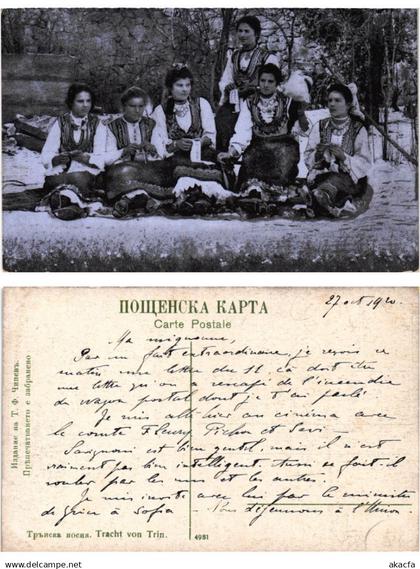 ПОЩЕНСКА КАРТА
Carte Postale
27 oct 1920.
Ma mignonne,
Par un fait extraordinaire, je reçois ce
matin une lettre du 12, ça doit être
une lettre qu'on a rescapé de l'incendie
du wagon postal dont je t'ai parlé
Je suis allé hier au cinéma avec
le comte Fleury, Pichon et
est bien gentil, mais il n'est
vraiment pas bien intelligent, tu se fait il
rouler par les uns et les autres.
Je suis invité avec lui par le ministre
de Grèce à Sofia - Nous déjeunons à l'Union.
Издание на Т. Ф. Чипевъ.
Прѣпечатването е забранено
Трънска носия. Tracht von Trin.
4981
www.delcampe.net
akacfa